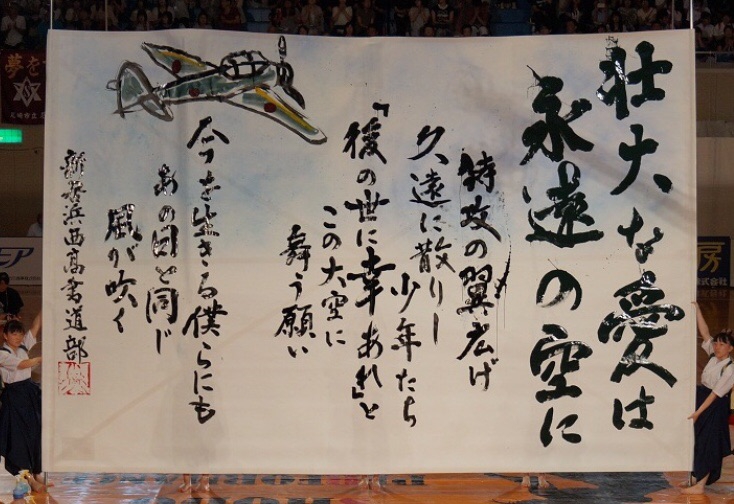 壮大な愛は
永遠の空に
特攻の翼広げ
久遠に散りし
少年たち
「後の世に幸あれ」と
この大空に
舞う願い
今を生きる僕らにも
あの日と同じ
風が吹く
新居浜西高書道部
夢を
房
株式会社